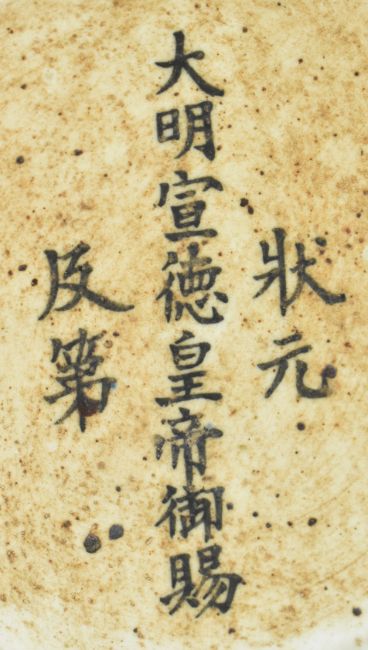 狀元
大明宣德皇帝御賜
反第